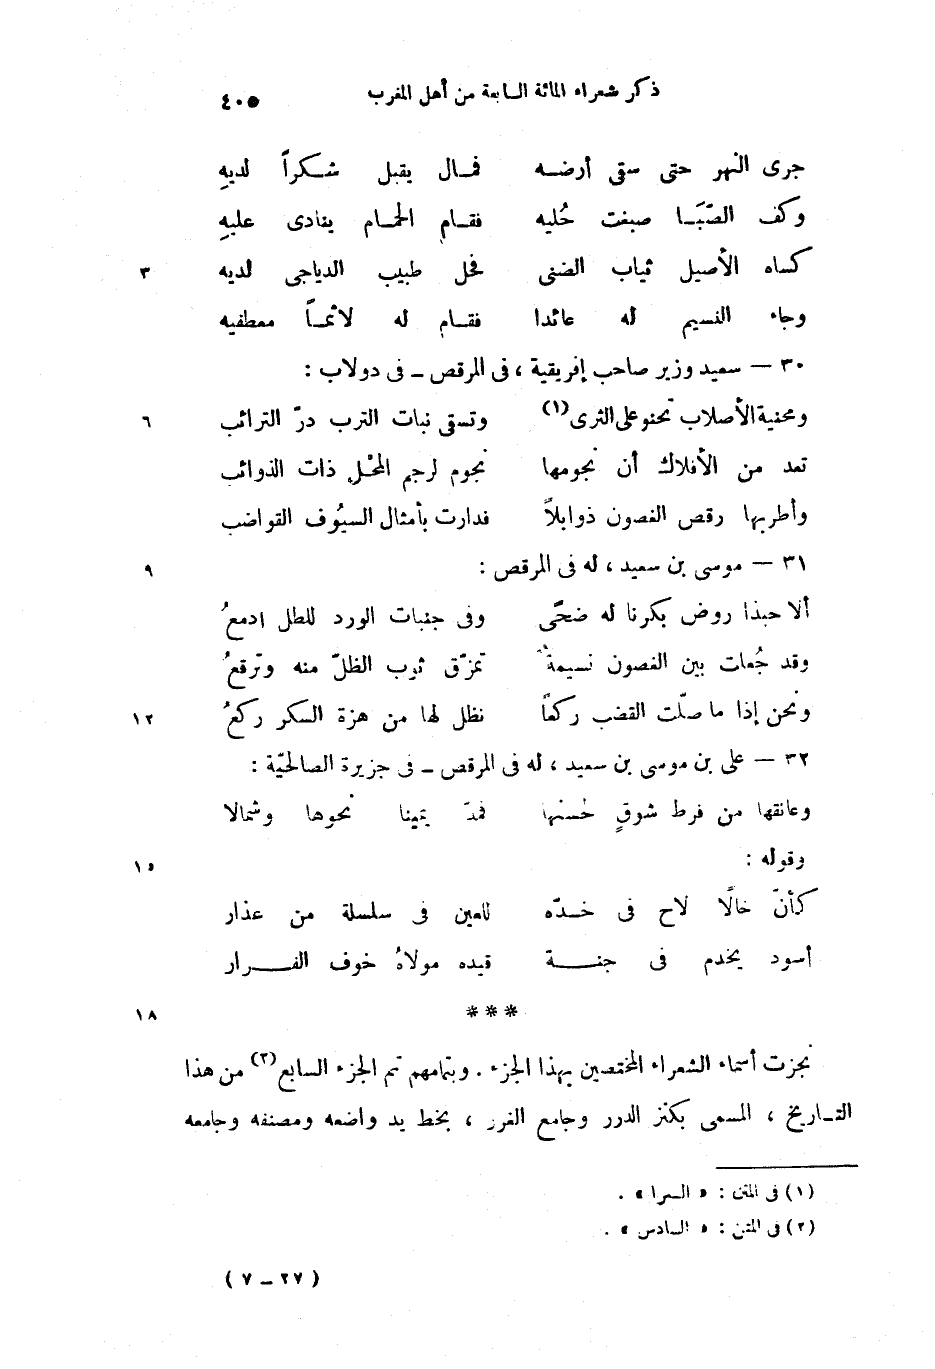 ذكر شعراء المائة السابعة من أهل المغرب ٤٠٥
جرى النهر حتى سقى أرضه فمال يقبل شكراً لديهِ
وكف الصَّبَا صبغت حُليه فقام الحمام ينادى عليهِ
كساه الأصيل ثياب الضنى فحل طبيب الدياجى لديه ٣
وجاء النسيم له عائدا فقام له لاثماً معطفيه
٣٠ — سعيد وزير صاحب إفريقية ، فى المرقص ـ فى دولاب :
ومحنية الأصلاب تحنو على الثرى(١) وتسقى نبات الترب درّ الترائب ٦
تعد من الأفلاك أن نجومها نجوم لرجم المحْل ذات الذوائب
وأطربها رقص الغصون ذوابلاً فدارت بأمثال السيُوف القواضب
٣١ — موسى بن سعيد ، له فى المرقص : ٩
ألا حبذا روض بكرنا له ضحًى وفى جنبات الورد للطل ادمعُ
وقد جُعلت بين الغصون نسيمة تمزّق ثوب الظلّ منه وترقعُ
ونحن إذا ما صلّت القضب ركعاً نظل لها من هزة السكر ركعُ ١٢
٣٢ — على بن موسى بن سعيد ، له فى المرقص ـ فى جزيرة الصالحيّة :
وعانقها من فرط شوقٍ حُسنها فمدّ يمينا نحوها وشمالا
وقوله : ١٥
كأنّ خالًا لاح فى خدّه للعين فى سلسلة من عذار
أسود يخدم فى جنة قيده مولاهُ خوف الفرار
*** ١٨
نجزت أسماء الشعراء المختصين بهذا الجزء . وبتمامهم تم الجزء السابع(٢) من هذا
التاريخ ، المسمى بكنز الدرر وجامع الغرر ، بخط يد واضعه ومصنفه وجامعه
(١) فى المتن : « السرا » .
(٢) فى المتن : « السادس » .
( ٢٧ ـ ٧ )